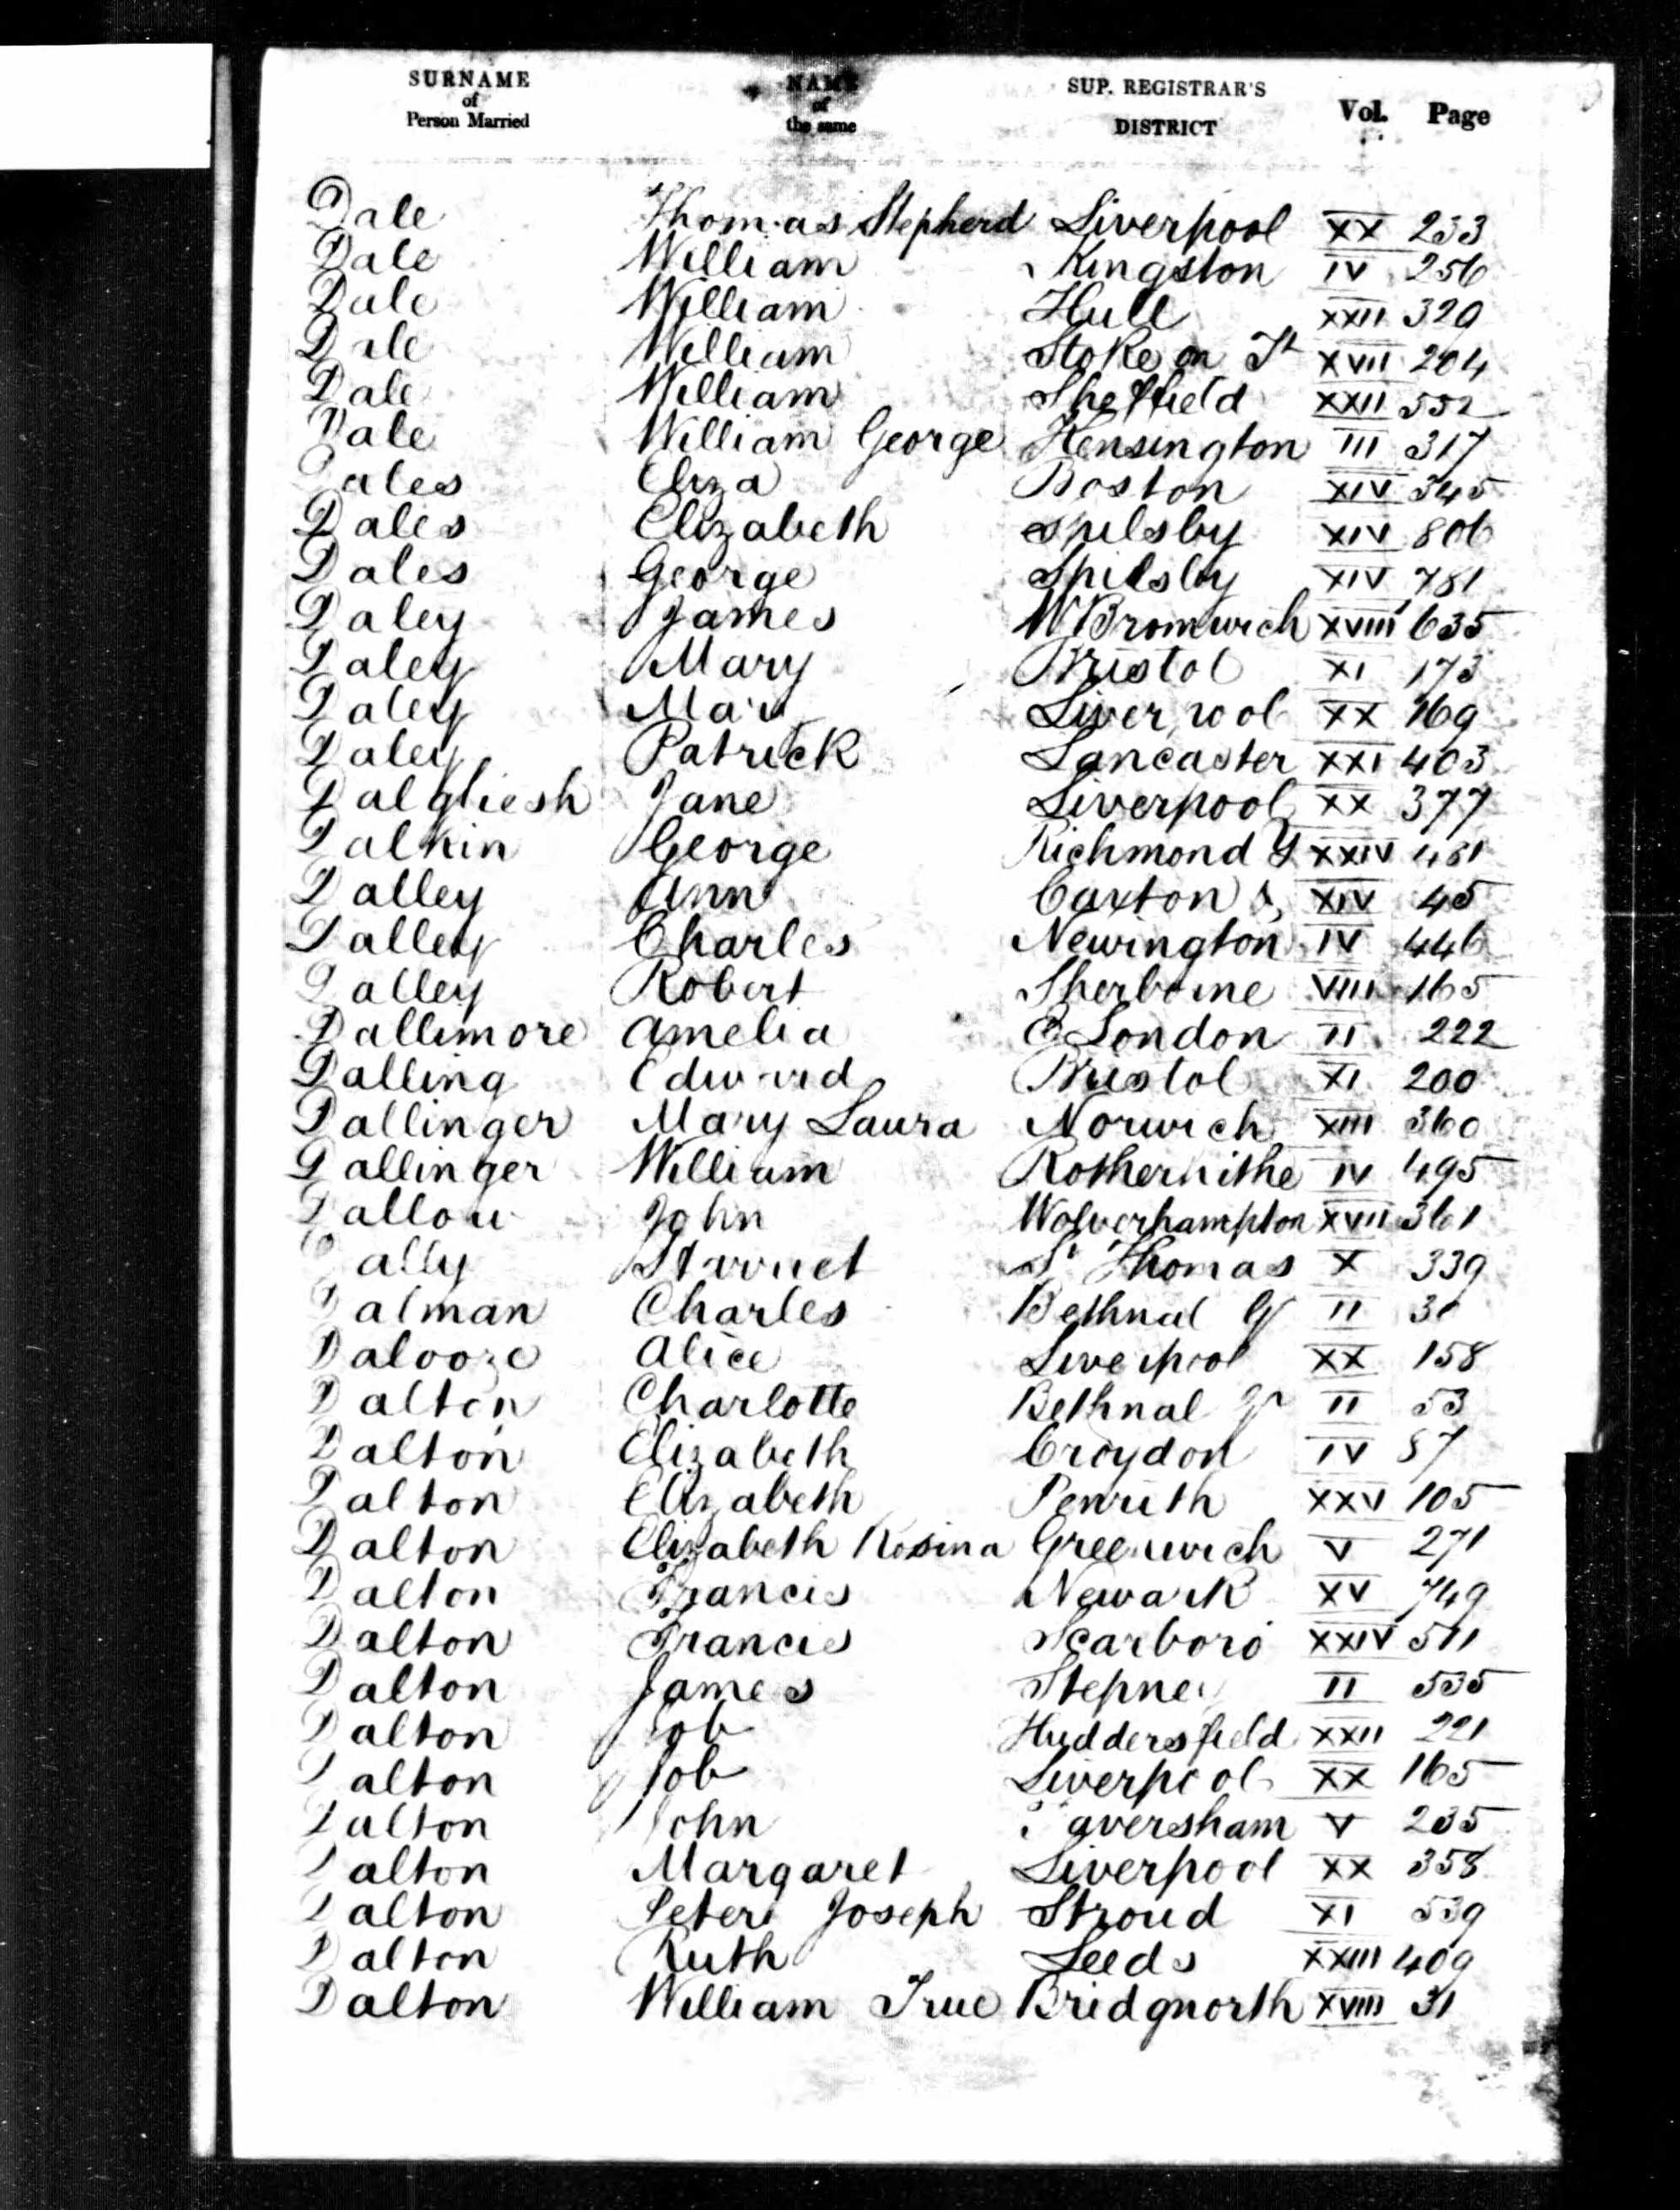 SURNAME of Person Married NAME of the same SUP. REGISTRAR'S DISTRICT Vol. Page
Dale Thomas Stepherd Liverpool XX 233
Dale William Kingston IV 256
Dale William Hull XXII 329
Dale William Stoke on Tt XVII 204
Dale William Sheffield XXII 552
Dale William George Kensington III 317
Dales Eliza Boston XIV 345
Dales Elizabeth Spilsby XIV 806
Dales George Spilsby XIV 781
Daley James W Bromwich XVIII 635
Daley Mary Bristol XI 173
Daley Mary Liverpool XX 169
Daley Patrick Lancaster XXI 403
Dalgliesh Jane Liverpool XX 377
Dalkin George Richmond Y XXIV 481
Dalley Ann Caxton &, XIV 45
Dalley Charles Newington IV 446
Dalley Robert Sherborne VIII 165
Dallimore Amelia E London II 222
Dalling Edward Bristol XI 200
Dallinger Mary Laura Norwich XIII 360
Dallinger William Rotherhithe IV 495
Dallow John Wolverhampton XVII 361
Dally St Thomas X 339
Dalman Charles Bethnal Gr II
Dalooze Alice Liverpool XX 158
Dalton Charlotte Bethnal Gr II 53
Dalton Elizabeth Croydon IV 87
Dalton Elizabeth Penrith XXV 105
Dalton Elizabeth Rosina Greenwich V 271
Dalton Francis Newark XV 749
Dalton Francis Scarboro XXIV 511
Dalton James Stepney II 535
Dalton Job Huddersfield XXII 221
Dalton Job Liverpool XX 165
Dalton John Faversham V 235
Dalton Margaret Liverpool XX 358
Dalton Peter Joseph Stroud XI 539
Dalton Ruth Leeds XXIII 409
Dalton William True Bridgnorth XVIII 31